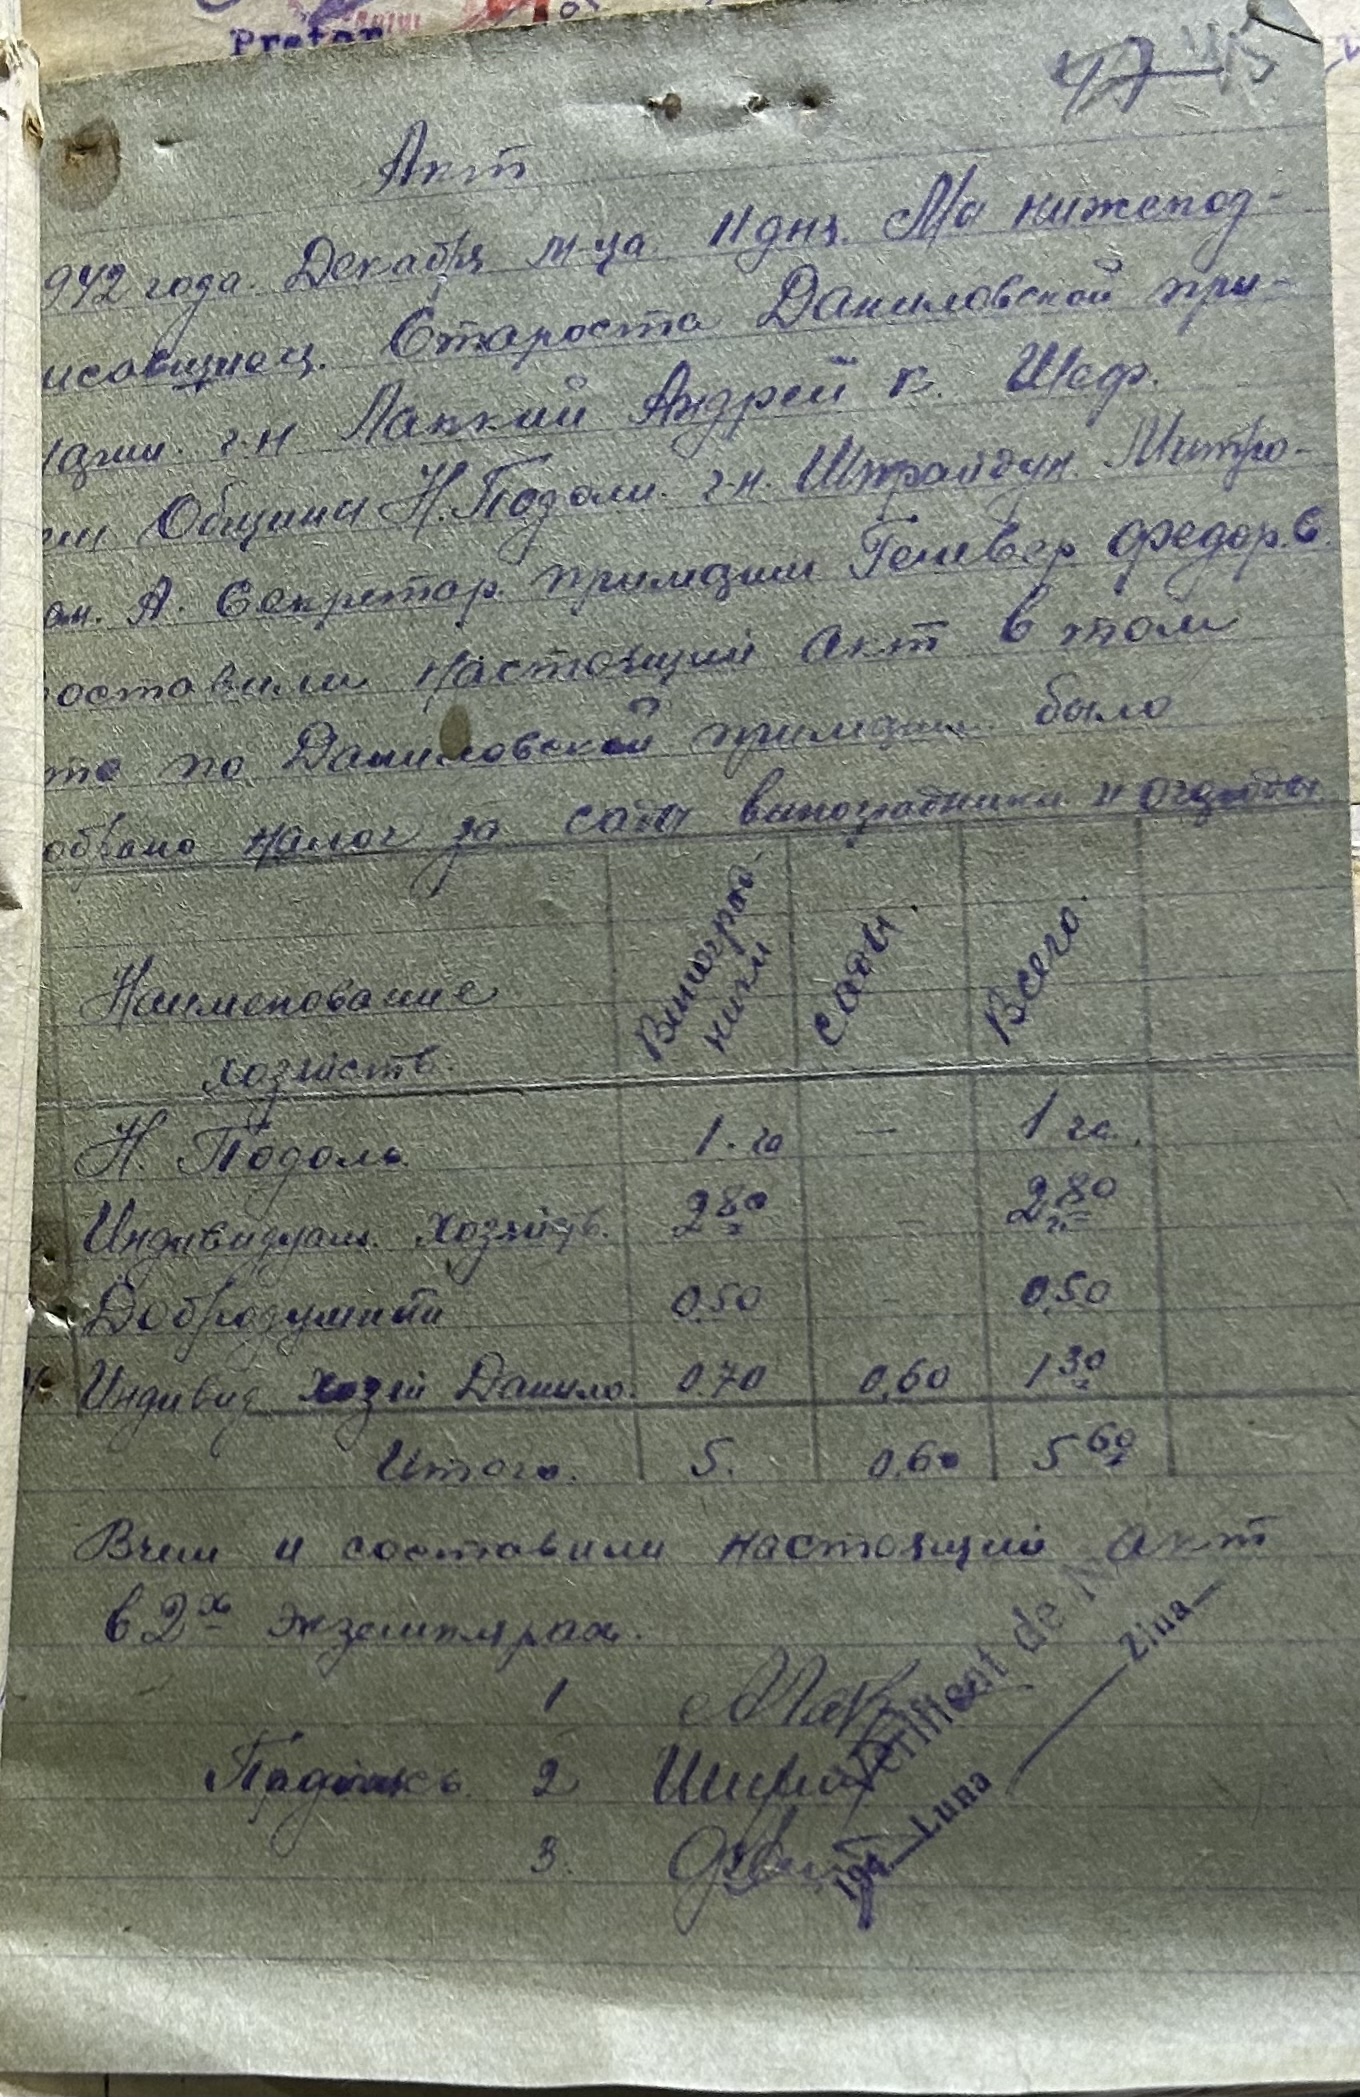 Pretor
47 45
Акт
942 года. Декабря м-ца 11 дня. Мы нижепод-
исавшиеся. Староста Даниловской при-
марии. г-н Лапкий Андрей к. Шеф.
Общины Н. Подоли. г-н. Штрайдун. Митро-
ан. А. Секретар. примации Генвер Федор. С.
оставили настоящий акт в том
что по Даниловской примации было
обрано налог за сады виноградники и огороды
Наименование
хозяйств.
Виноград-
ники
Сады.
Всего.
Н. Подоль 1. га — 1 га.
Индивидуал. хозяйств. 2 80 — 2 80
Добродушити 0.50 — 0.50
Индивид хозяй Данило. 0.70 0,60 1 30
Итого. 5. 0.60 5 60
Вчем и составили настоящий акт
в 2х экземплярах.
1
Подпись. 2
3.
194 Luna Ziua